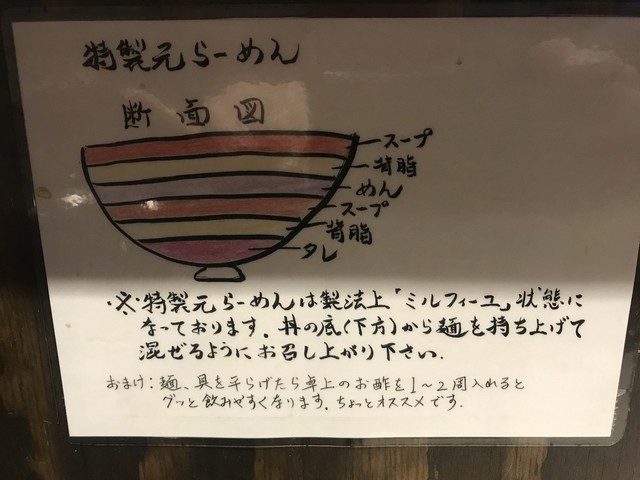 特製元らーめん
断面図
スープ
背脂
めん
スープ
背脂
タレ
※特製元らーめんは製法上「ミルフィーユ」状態に
なっております。丼の底(下方)から麺を持ち上げて
混ぜるようにお召し上がり下さい.
おまけ:麺、具を平らげたら卓上のお酢を1～2周入れると
グッと飲みやすくなります。ちょっとオススメです.